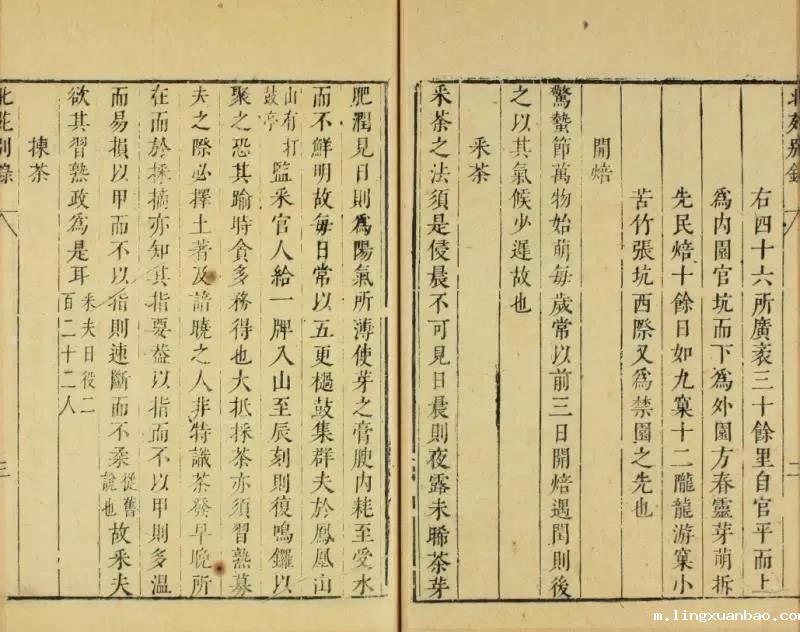 右四十六所廣袤三十餘里自官平而上
爲内園官坑而下爲外園方春靈芽萌拆
先民焙十餘日如九窠十二隴龍游窠小
苦竹張坑西際又爲禁園之先也
開焙
驚蟄節萬物始萌每歲常以前三日開焙遇閏則後
之以其氣候少遲故也
采茶
采茶之法須是侵晨不可見日晨則夜露未晞茶芽
肥潤見日則爲陽氣所薄使芽之膏腴内耗至受水
而不鮮明故每日常以五更檛鼓集群夫於鳳凰山
山有打
鼓亭
監采官人給一牌入山至辰刻則復鳴鑼以
聚之恐其踰時貪多務得也大抵採茶亦須習熟募
夫之際必擇土著及諳曉之人非特識茶發早晚所
在而於採摘亦知其指要葢以指而不以甲則多溫
而易損以甲而不以指則速斷而不柔
從舊
說也
故采夫
欲其習熟政爲是耳
采夫日役二
百二十二人
揀茶
北苑別錄
三
m.lingxuanbao.com